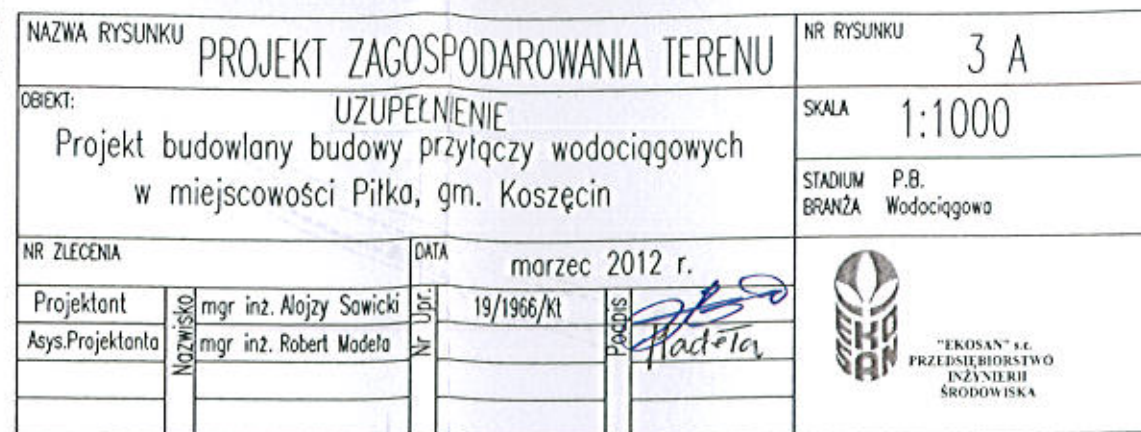 NAZWA RYSUNKU
PROJEKT ZAGOSPODAROWANIA TERENU
NR RYSUNKU
3 A
OBIEKT:
UZUPEŁNIENIE
Projekt budowlany budowy przyłączy wodociągowych
w miejscowości Piłka, gm. Koszęcin
SKALA
1:1000
STADIUM P.B.
BRANŻA Wodociągowa
NR ZLECENIA
DATA
marzec 2012 r.
Projektant
Nazwisko
mgr inż. Alojzy Sawicki
Nr Upr.
19/1966/Kt
Podpis
Asys.Projektanta
mgr inż. Robert Madeła
Madeła
EKOSAN
"EKOSAN" s.c.
PRZEDSIĘBIORSTWO
INŻYNIERII
ŚRODOWISKA